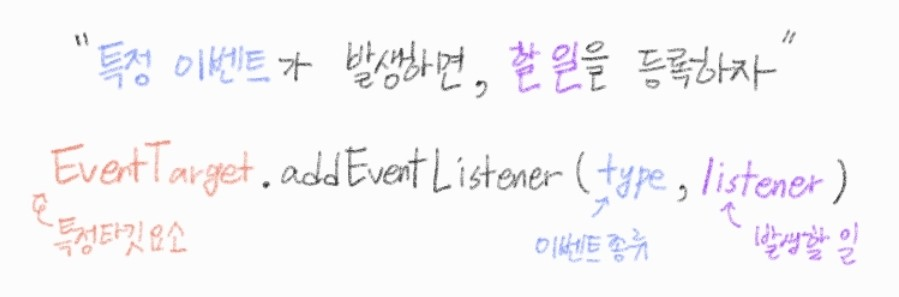 "특정 이벤트가 발생하면, 할 일을 등록하자"
EventTarget.addEventListener(type, listener)
특정타깃요소
이벤트종류
발생할 일